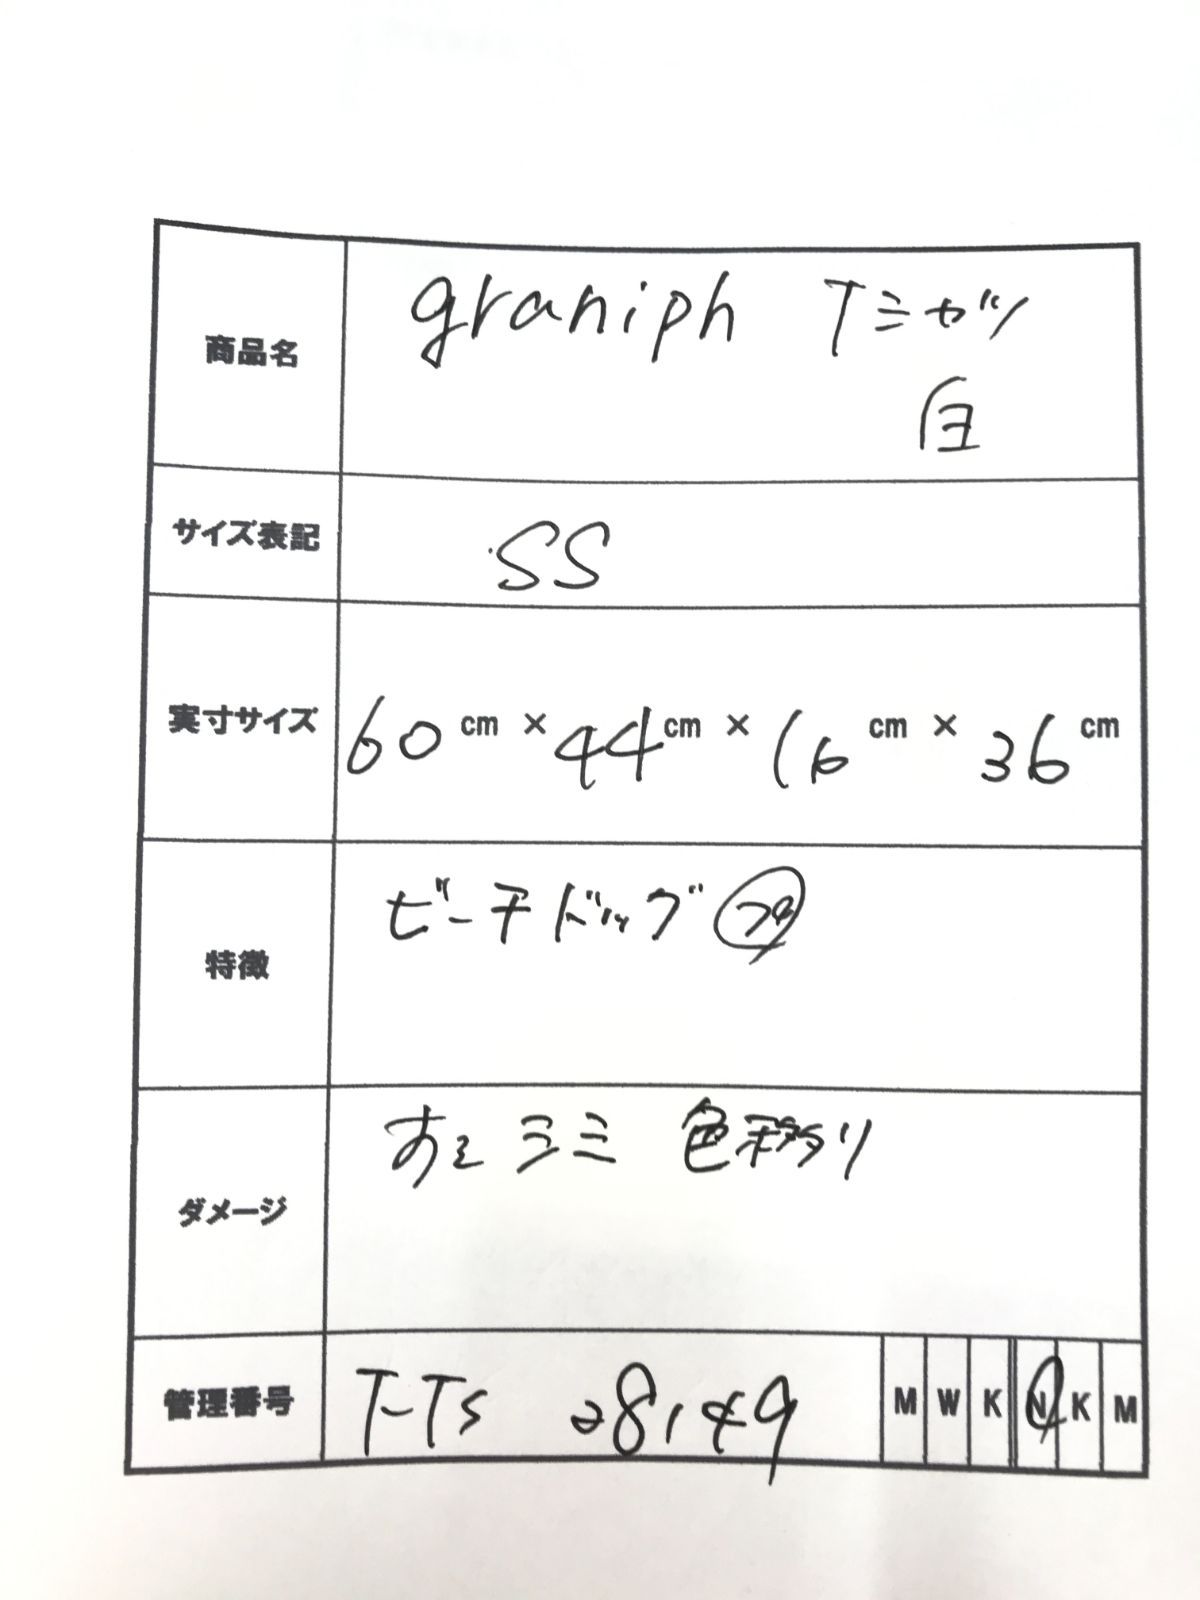 商品名 graniph Tシャツ
白
サイズ表記 SS
実寸サイズ 60 cm × 44 cm × 16 cm × 36 cm
特徴 ビーチドッグ
ダメージ シミ 色移り
管理番号 T-TS 28149 M W K N K M